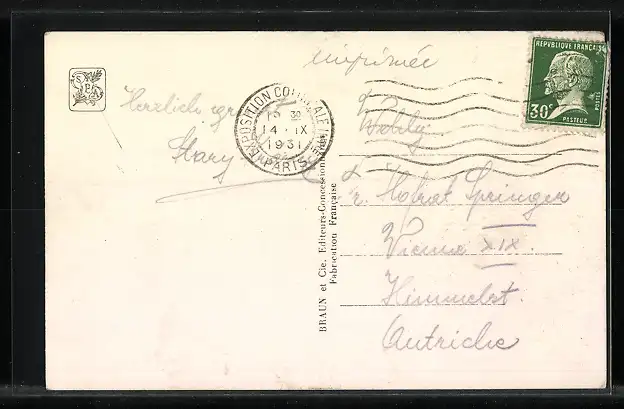 imprimée
RÉPUBLIQUE FRANÇAISE
30c
PASTEUR
POSTES
S P A
EXPOSITION COLONIALE INTle
PARIS
15 30
14 · IX
1931
Herzlich grüsst
Mary
Wohlg.
Hofrat Springer
Vienne XIX.
Himmelst.
Autriche
BRAUN et Cie, Editeurs-Concessionnaires
Fabrication Française